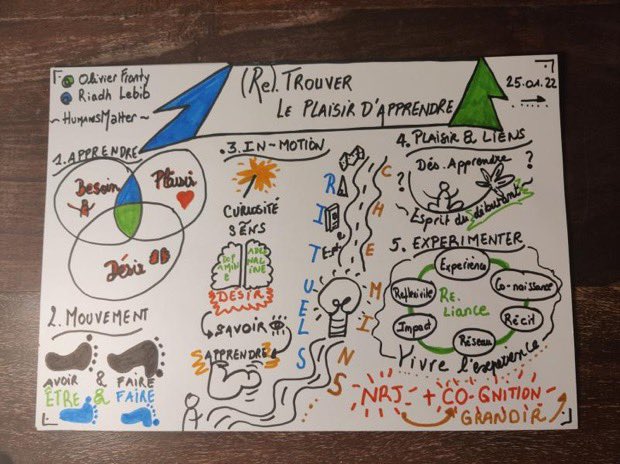 Olivier Pronty
Riadh Lebib
~ HUMANS MATTER ~
(Re). TROUVER
LE PLAISIR D'APPRENDRE
25.01.22
1. APPRENDRE
Besoin
Plaisir
Désir
2. MOUVEMENT
AVOIR & FAIRE
ETRE & FAIRE
.3. IN-MOTION
CURIOSITÉ
SENS
DOPAMINE
ADRÉNALINE
DESIR
SAVOIR
APPRENDRE
RITUELS
CHEMINS
4. PLAISIR & LIENS
Dés. Apprendre
? ?
Esprit du débutant
5. EXPERIMENTER
Expérience
Co-naissance
Récit
Réseau
Impact
Reflexivité
RE.
Liance
Vivre l'expérience
NRJ + CO-GNITION
GRANDIR